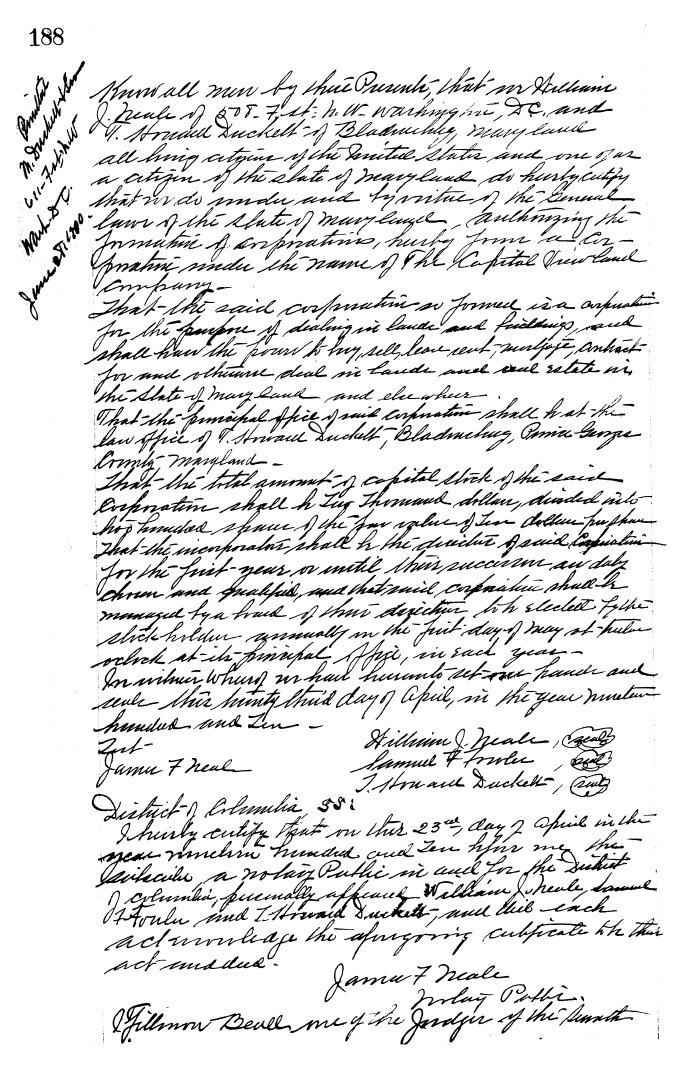 188
Printed
M. Duckett & Son
611-7 st. N.W
Wash D.C.
June 28, 1910.
Know all men by these Presents, that we William
J. Neale of 508-7, st. N.W. Washington, D.C. and
T. Howard Duckett of Bladensburg, Maryland
all being citizens of the United States and one of us
a citizen of the state of Maryland do hereby certify
that we do under and by virtue of the General
laws of the State of Maryland, authorizing the
formation of corporations, hereby form a Cor-
poration under the name of The Capital View Land
Company-
That the said corporation so formed is a corporation
for the purpose of dealing in lands and buildings, and
shall have the power to buy, sell, lease rent, mortgage, contract
for and otherwise deal in lands and real estate in
the State of Maryland and elsewhere.
That the principal office of said corporation shall be at the
law office of T. Howard Duckett, Bladensburg, Prince Georges
County, Maryland-
That the total amount of capital stock of the said
Corporation shall be Ten Thousand dollars, divided into
hundred of the par value of Ten dollars per share
That the incorporators shall be the directors of said Corporation
for the first year or until their successors are duly
chosen and qualified, and that said corporation shall be
managed by a board of three directors to be elected by the
stockholders annually on the first day of May at twelve
oclock at its principal office, in each year-
In witness whereof we have hereunto set our hands and
seals this twenty third day of April, in the year nineteen
hundred and Ten -
Test-
William J. Neale, (seal)
Samuel F Fowler, (seal)
James F Neale
T. Howard Duckett, (seal)
District of Columbia, SS:
I hereby certify that on this 23rd, day of April in the
year nineteen hundred and Ten before me, the
subscriber a notary Public in and for the District
of Columbia, personally appeared William J. Neale, Samuel
F Fowler and T. Howard Duckett, and did each
acknowledge the aforegoing certificate to be their
act and deed.
James F Neale
Notary Public.
I Fillmore Beall one of the Judges of the Seventh